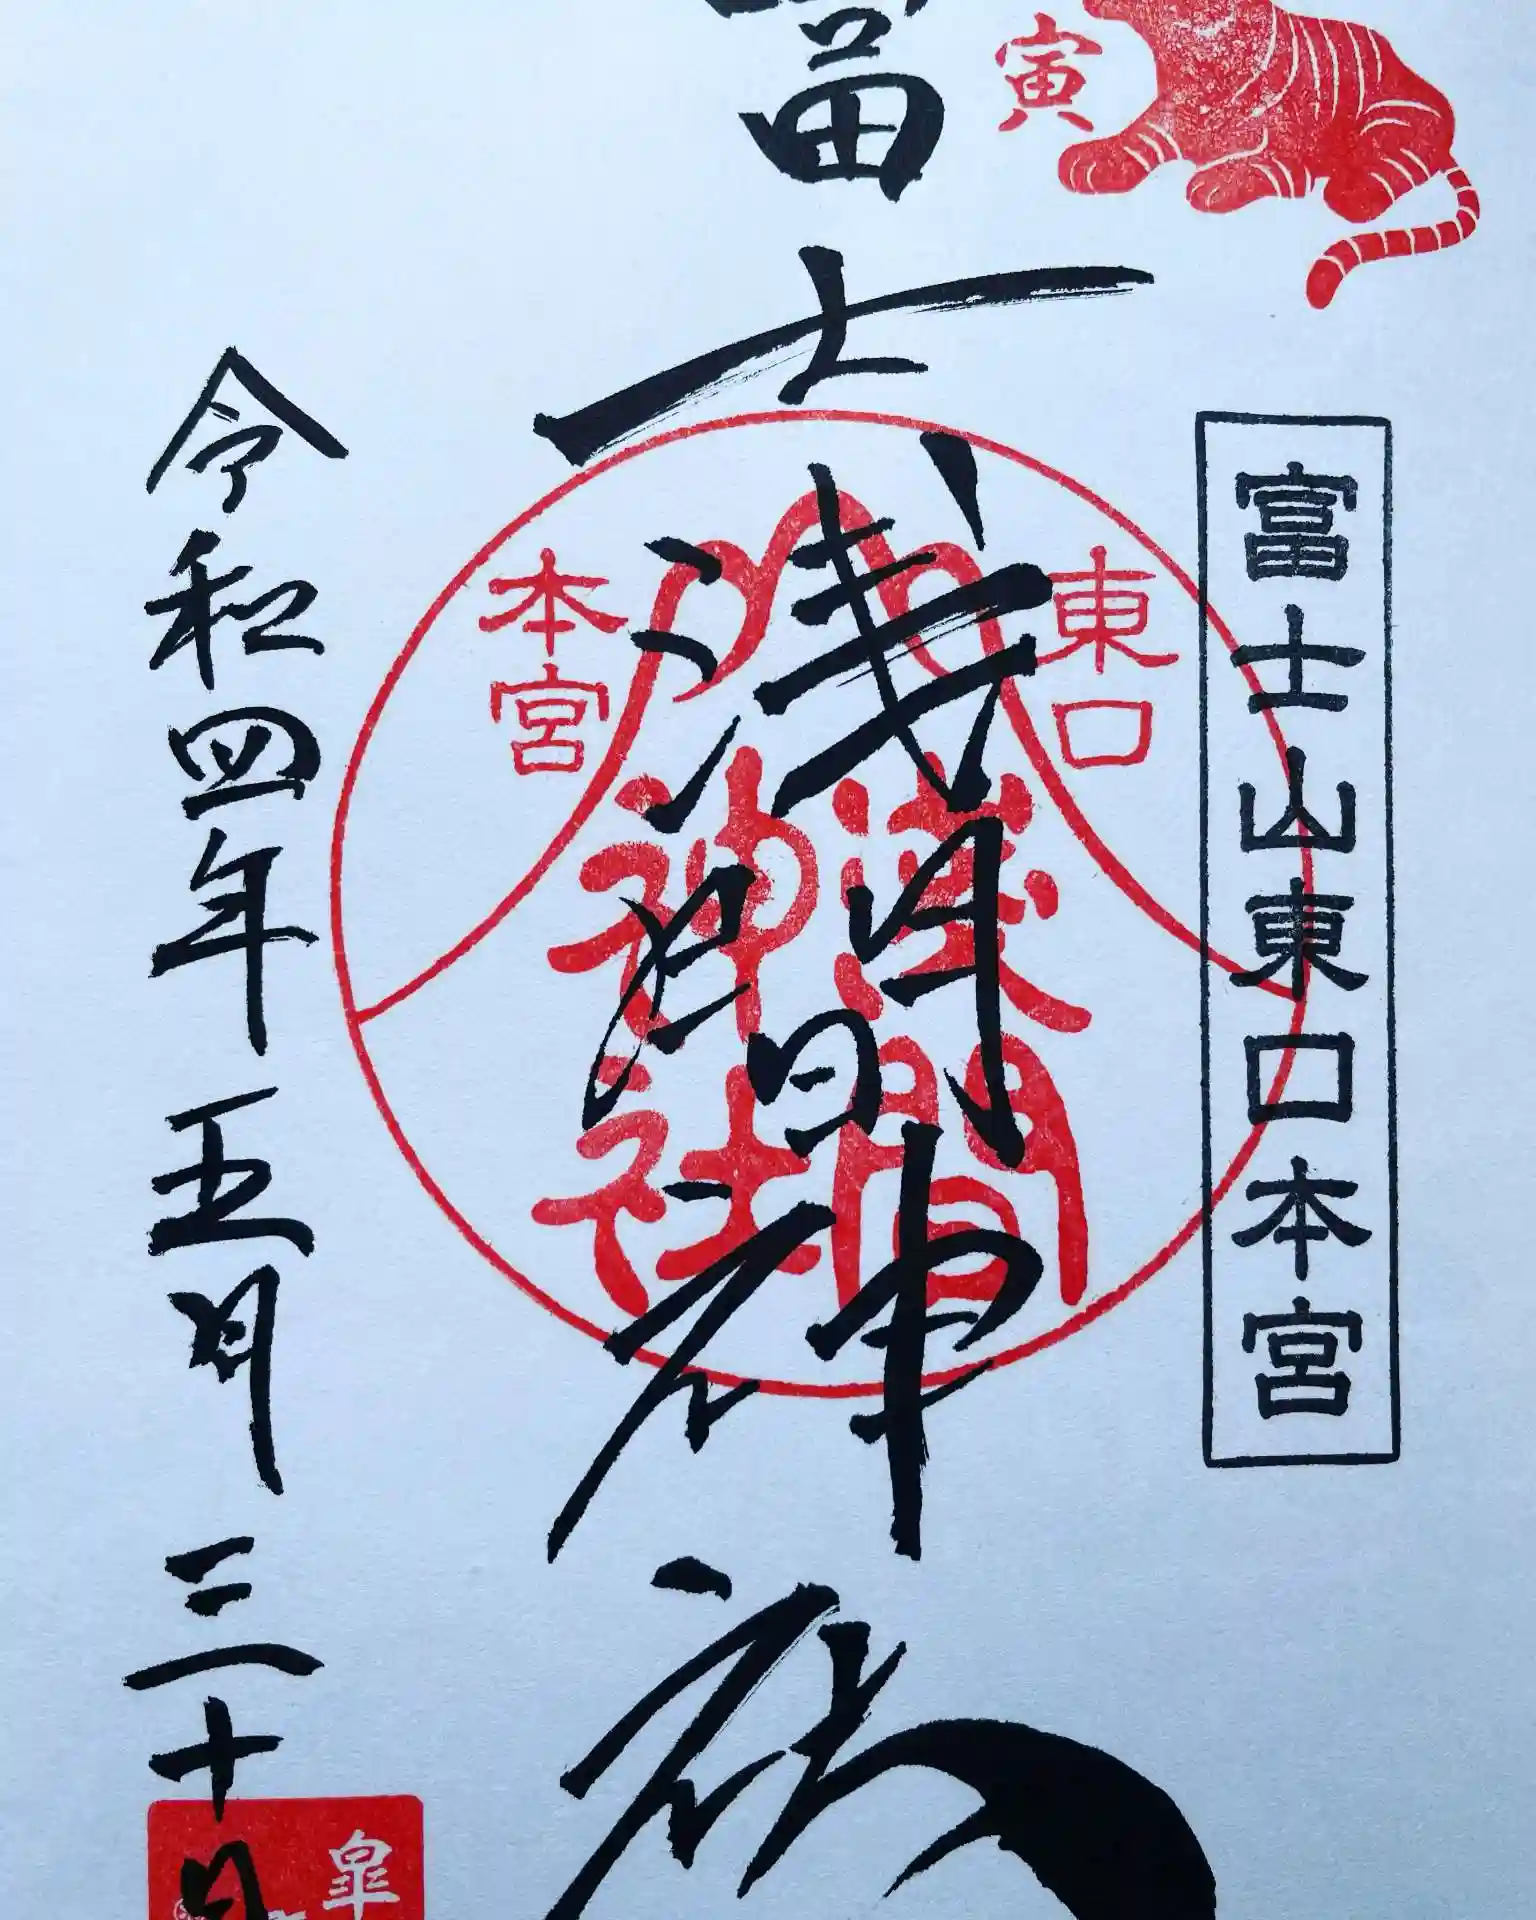 寅
富士山東口本宮
富士浅間神社
東口
本宮
浅間
神社
令和四年五月三十日
皐